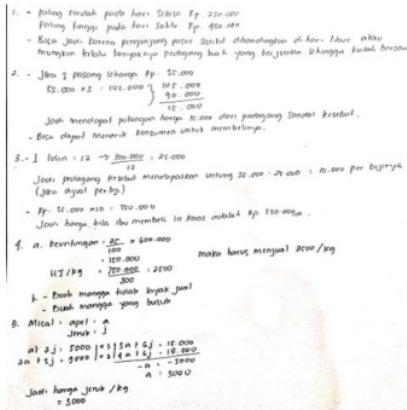 1. - paling rendah pada hari Selasa Rp. 250.000
Paling tinggi pada hari Sabtu Rp. 400.000
- Bisa jadi karena pengunjung pasar sedikit dibandingkan di hari libur atau
mungkin terlalu banyaknya pedagang buah yang berjualan sehingga kalah bersaing
2. - Jika 3 pasang seharga Rp. 35.000
35.000 x 3 = 105.000 } 105.000
90.000
15.000
Jadi mendapat potongan harga 15.000 dari pedagang sandal tersebut.
- Bisa dapat menarik konsumen untuk membelinya.
3. - 1 lusin = 12 → 300.000 = 25.000
12
Jadi pedagang tersebut mendapatkan untung 35.000 - 25.000 = 10.000 per bijinya
(jika dijual per bj.)
- Rp. 35.000 x 10 = 350.000
Jadi harga bila ibu membeli 10 kaos adalah Rp. 350.000
4. a. Keuntungan = 25 x 600.000
100
= 150.000
maka harus menjual 2500/kg
HJ/kg = 750.000 = 2500
300
b. - Buah mangga tidak layak jual
- Buah mangga yang busuk
5. Misal = apel = a
Jeruk = j
a + 2j = 5000 | x3 | 3a + 6j = 15.000
2a + 3j = 9000 | x2 | 4a + 6j = 18.000
-a = -3000
a = 3000
Jadi harga jeruk /kg
= 3000